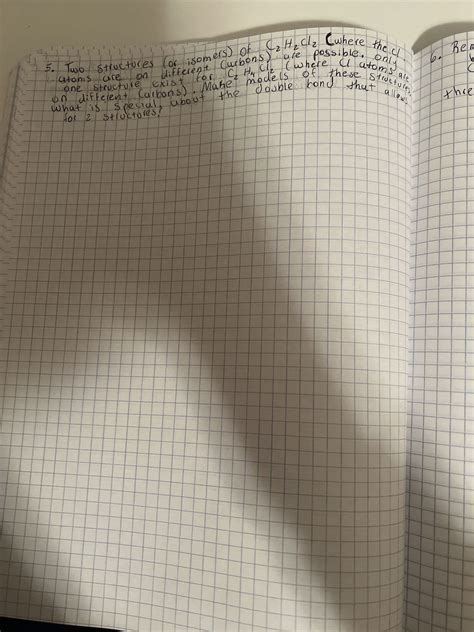 5. Two structures (or isomers) of C2H2Cl2 (where the Cl
atoms are on different carbons) are possible. Only
one structure exist for C2H4Cl2 (where Cl atoms are
on different carbons). Make models of these structures
what is special about the double bond that allows
for 2 structures?
6. Rem
thre